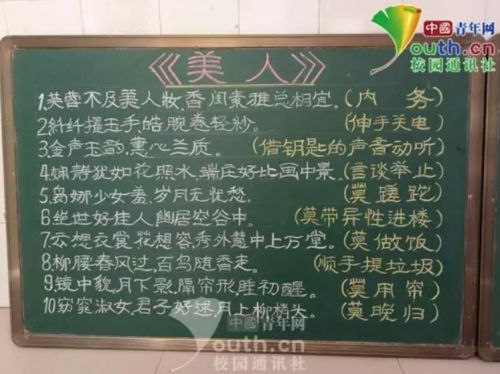 中國青年网
Youth.cn
校园通讯社
《美人》
1.芙蓉不及美人妆,香闺素雅总相宜。(内务)
2.纤纤擢玉手,皓腕卷轻纱。(伸手关电)
3.金声玉韵,惠心兰质。(借钥匙的声音动听)
4.娴静犹如花照水,端庄好比画中景。(言谈举止)
5.袅娜少女羞,岁月无忧愁。(莫蹉跎)
6.绝世好佳人,幽居空谷中。(莫带异性进楼)
7.云想衣裳花想容,秀外慧中上厅堂。(莫做饭)
8.柳腰春风过,百鸟随香走。(顺手提垃圾)
9.镜中貌,月下影,隔帘形,胜初醒。(莫用帘)
10.窈窕淑女,君子好逑,月上柳梢头。(莫晚归)
中國青年网
Youth.cn
校园通讯社